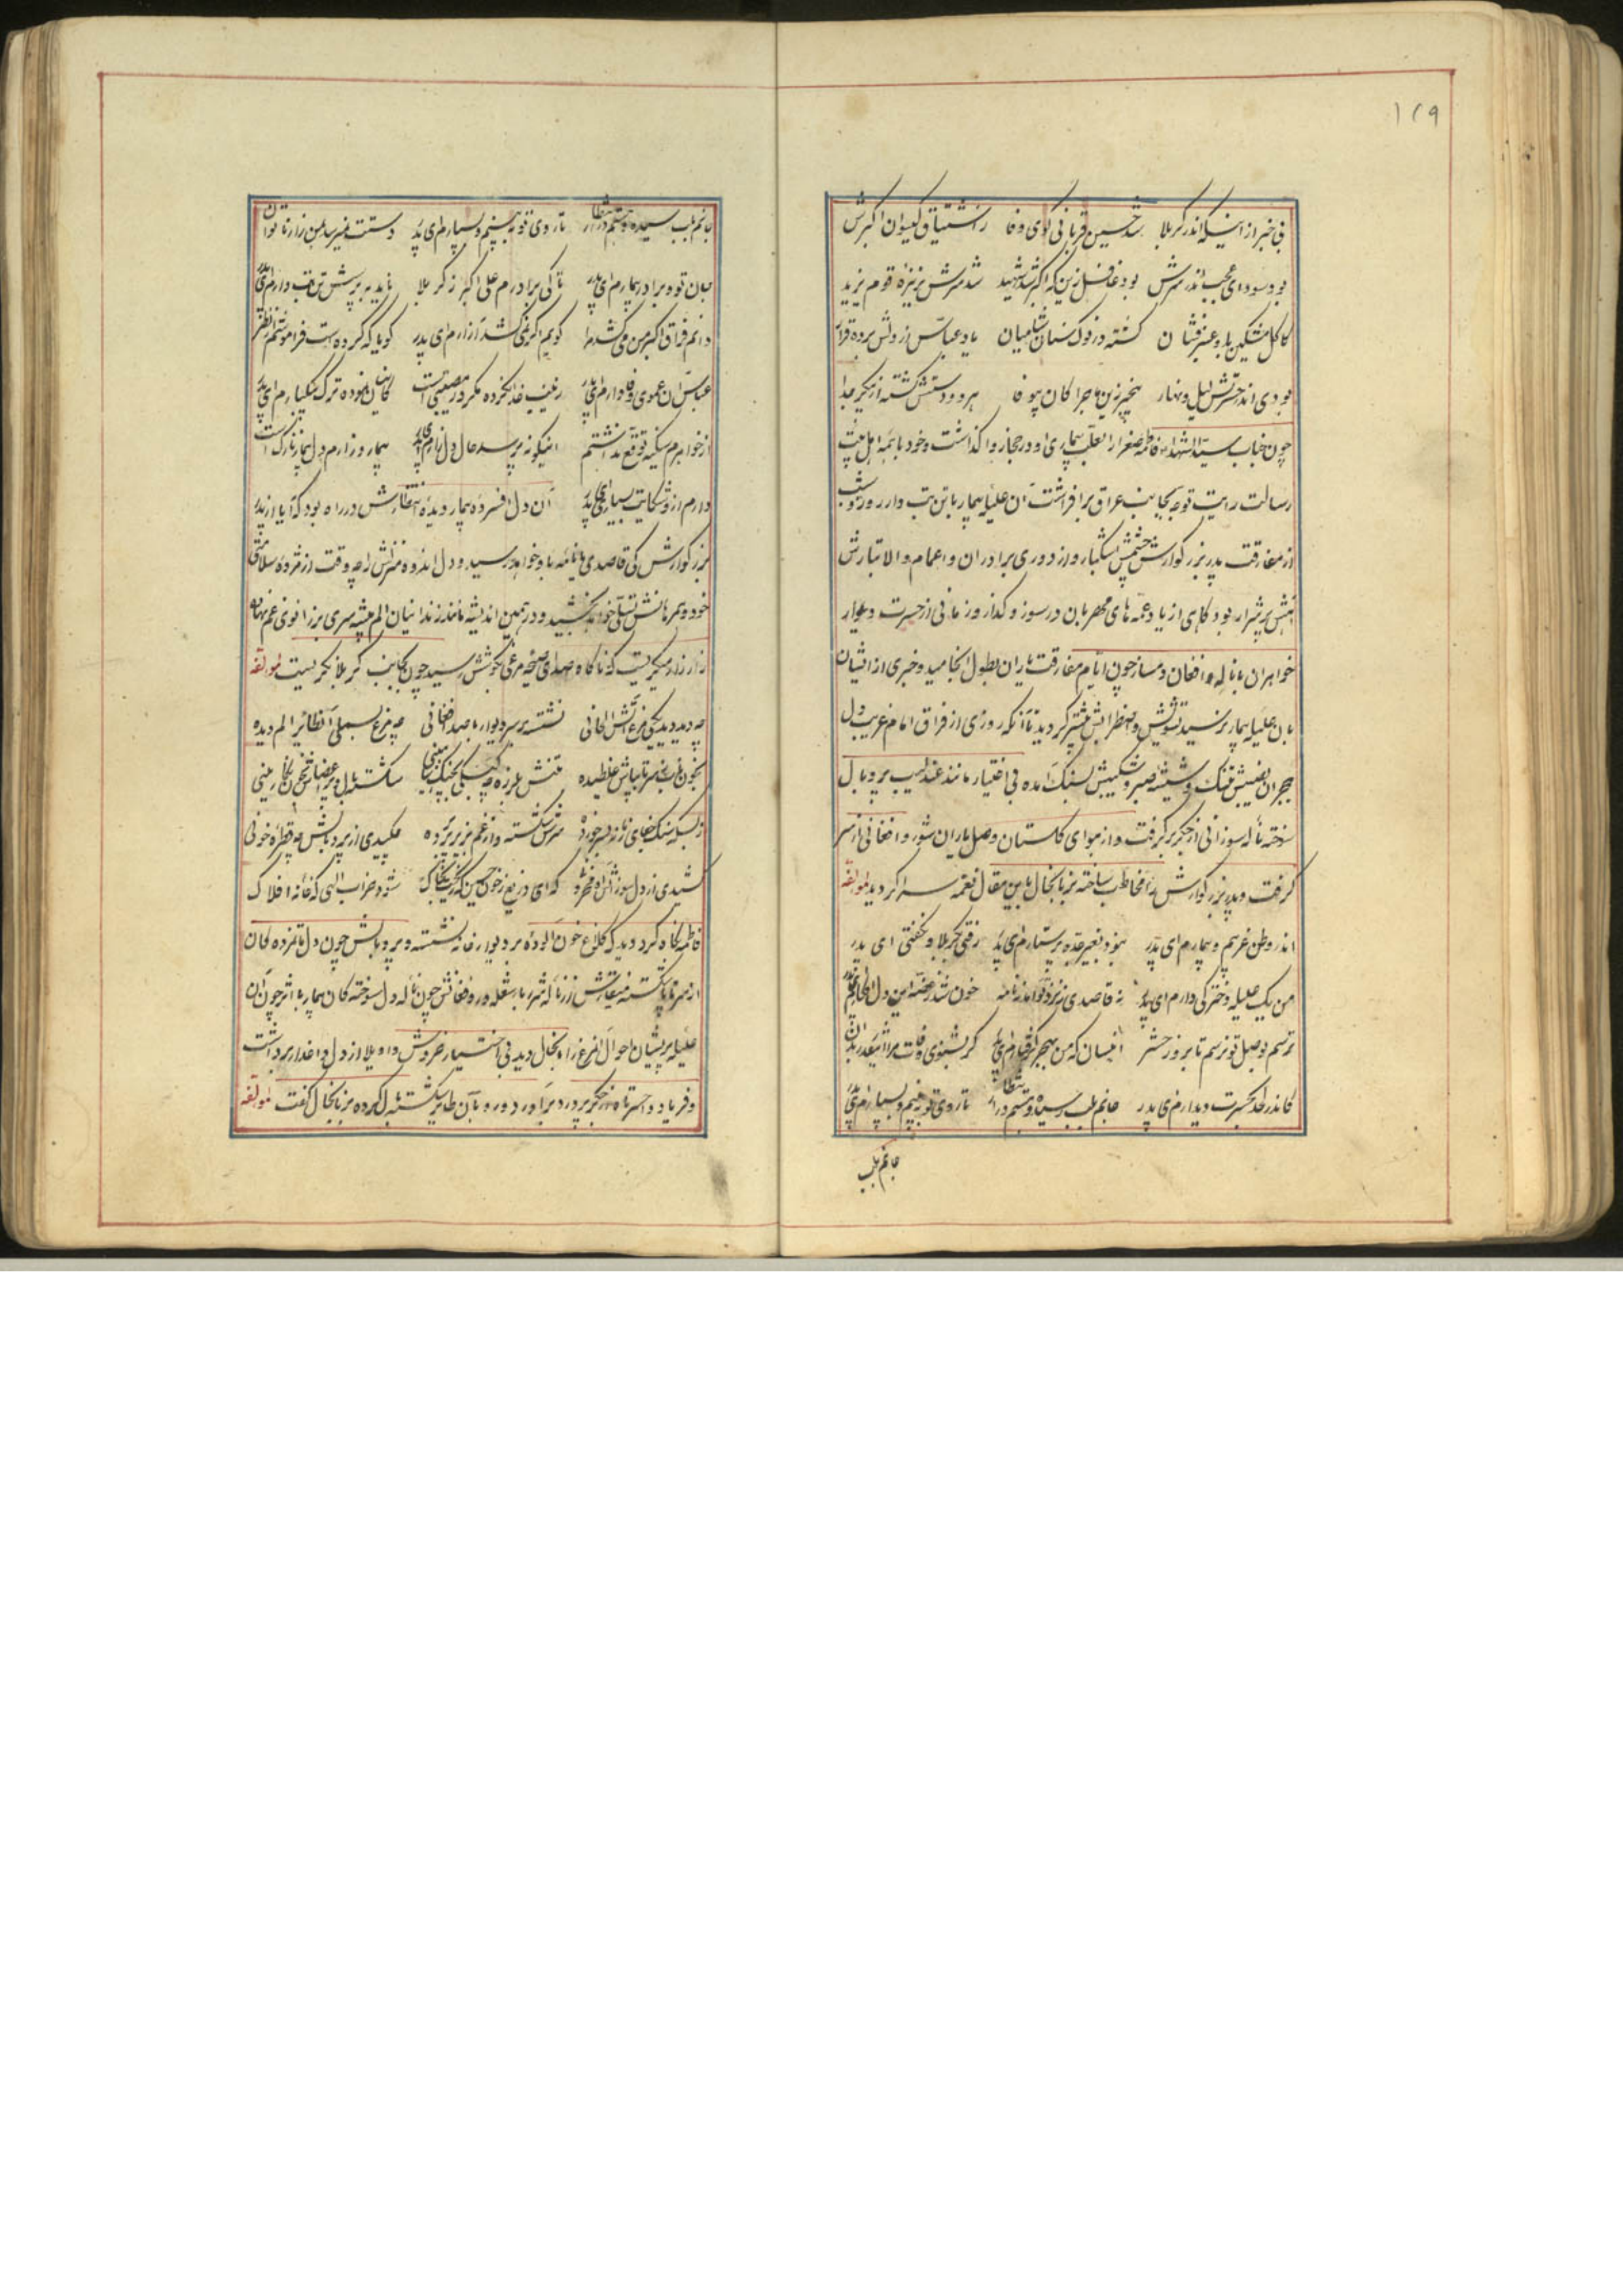 ۱۲۹
بی خبر از اینکه اندر کربلا شد حسین قربانی کوی وفا ز اشتیاق گیسوان اکبرش
بود سودای عجب اندر سرش بود غافل زین که اکبر شد شهید شد سرش بر نیزهٔ قوم یزید
کاکل مشکین با و عنبرفشان گشته در نوک سنان شامیان یاد عباس از دلش برده قرار
بودی اندر حسرتش لیل و نهار بیخبر زین ماجرا کان بیوفا هر دو دستش گشته از پیکر جدا
چون جناب سیدالشهداء فاطمه صغرا را بعلت بیماری او در حجاز واگذاشت و خود با همه اهل بیت
رسالت رایت توجه بجانب عراق برافراشت آن علیله بیمار با تن تب دار روز و شب
از مفارقت پدر بزرگوارش چشمش اشکبار و از دوری برادران و اعمام والاتبارش
آهش پر شرار بود گاهی از یاد عمه های مهربان در سوز و گداز و زمانی از حسرت دیدار
خواهران با ناله و افغان دمساز چون ایام مفارقت یاران بطول انجامید و خبری از ایشان
بان علیله بیمار نرسید تشویش و اضطرابش بیشتر گردید تا آنکه روزی از فراق امام غریب دل
هجران نصیبش تنگ و شیشه صبر و شکیبش بسنگ آمده بی اختیار مانند عندلیب پر و بال
سوخته ناله سوزانی از جگر برگرفت و از هوای گلستان وصل یاران شور و افغانی از سر
گرفت و پدر بزرگوارش را مخاطب ساخته بزبانحال باین مقال نغمه سرا گردید لمؤلفه
اندر وطن غریبم و بیمارم ای پدر نبود بغیر غصه پرستارم ای پدر رفتی بکربلا و نگفتی ای پدر
من یک علیله دخترکی دارم ای پدر نه قاصدی ز نزد تو آمد نه نامه خون شد ز غصه این دل افکارم ای پدر
ترسم بوصل تو نرسم تا بروز حشر اینسان که من بهجر گرفتارم ای پدر گر بشنوی وفات مرا اینقدر بدان
کاندر لحد بحسرت دیدارم ای پدر جانم بلب رسیده و چشمم در انتظار تا روی تو ببینم و بسپارم ای پدر
جانم بلب
جانم بلب رسیده و چشمم در انتظار تا روی تو ببینم و بسپارم ای پدر دستت نمیرسد بمن زار ناتوان
بان تو و برادر بیمارم ای پدر تا کی برادرم علی اکبر ز کربلا ناید به پرسش تن تب دارم ای پدر
دانم فراق اکبر من می کشد مرا گویم اگر نمی کشد آزارم ای پدر گویا که کرده است فراموشم از نظر
عباس آن عموی وفادارم ای پدر زینب خدا نکرده مگر در مصیبتی است کاین نموده ترک بیکبارم ای پدر
از خواهرم سکینه توقع نداشتم اینگونه نپرسد حال دل زارم ای پدر بیمار و زارم و دل بیمار نازک است
دارم از او شکایت بسیار ای پدر آن دل افسرده بیمار دیدهٔ انتظارش در راه بود که آیا از پدر
بزرگوارش کی قاصدی یا نامه باو خواهد رسید و دل اندوه منزلش را چه وقت از مژدهٔ سلامتی
خود و همرهانش تسلی خواهد بخشید و در همین اندیشه مانند زندانیان الم پیشه سری بزانوی غم نهاده
زار زار میگریست که ناگاه صدای صیحه مرغی بگوشش رسید چون بجانب کربلا نگریست لمؤلفه
چه دید دید یکی مرغ آتش الحانی نشسته بر سر دیوار با صد افغانی چه مرغ بسملی آن طایر الم دیده
بخون ناب سر تا بپاش غلطیده تنش بلرزه شکسته بال و بر اعضاش
ز بسکه سنگ جفای زمانه بر سر خورده سرش شکسته و از غم بزیر پر برده میکیدی از پر و بالش چو قطره خونی
کشیدی از دل سوزان و محزون که ای دریغ ز خون حسین شود خراب الهی که خانه افلاک
فاطمه نگاه کرد دید که کلاغ خون آلودهٔ بر دیوار خانه نشسته و پر و بالش چون دل ماتمزده گان
از سر تا پا شکسته منقارش از ناله شرر بار شعله ور و فغانش چون ناله دل سوخته گان بیمار با اثر چون آن
علیله پریشان احوال آن مرغ را بدانحال دید بی اختیار خروش واویلا از دل داغدار برداشت
و فریاد وا حسرتاه از جگر پر درد برآورد و رو بآن طایر شکسته بال کرده بزبانحال گفت لمؤلفه